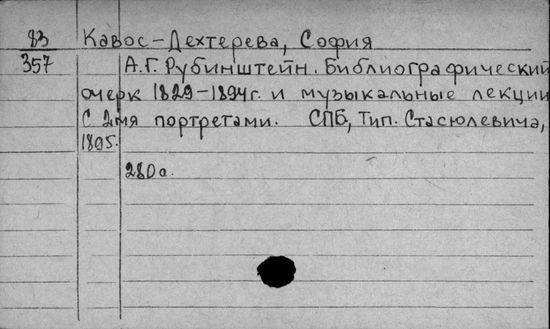 83 Кавос-Дехтерева, София
357 А.Г. Рубинштейн. Библиографический
очерк 1829-1894г. и музыкальные лекции
С 2мя портретами. СПБ, Тип. Стасюлевича,
1895.
280 с.